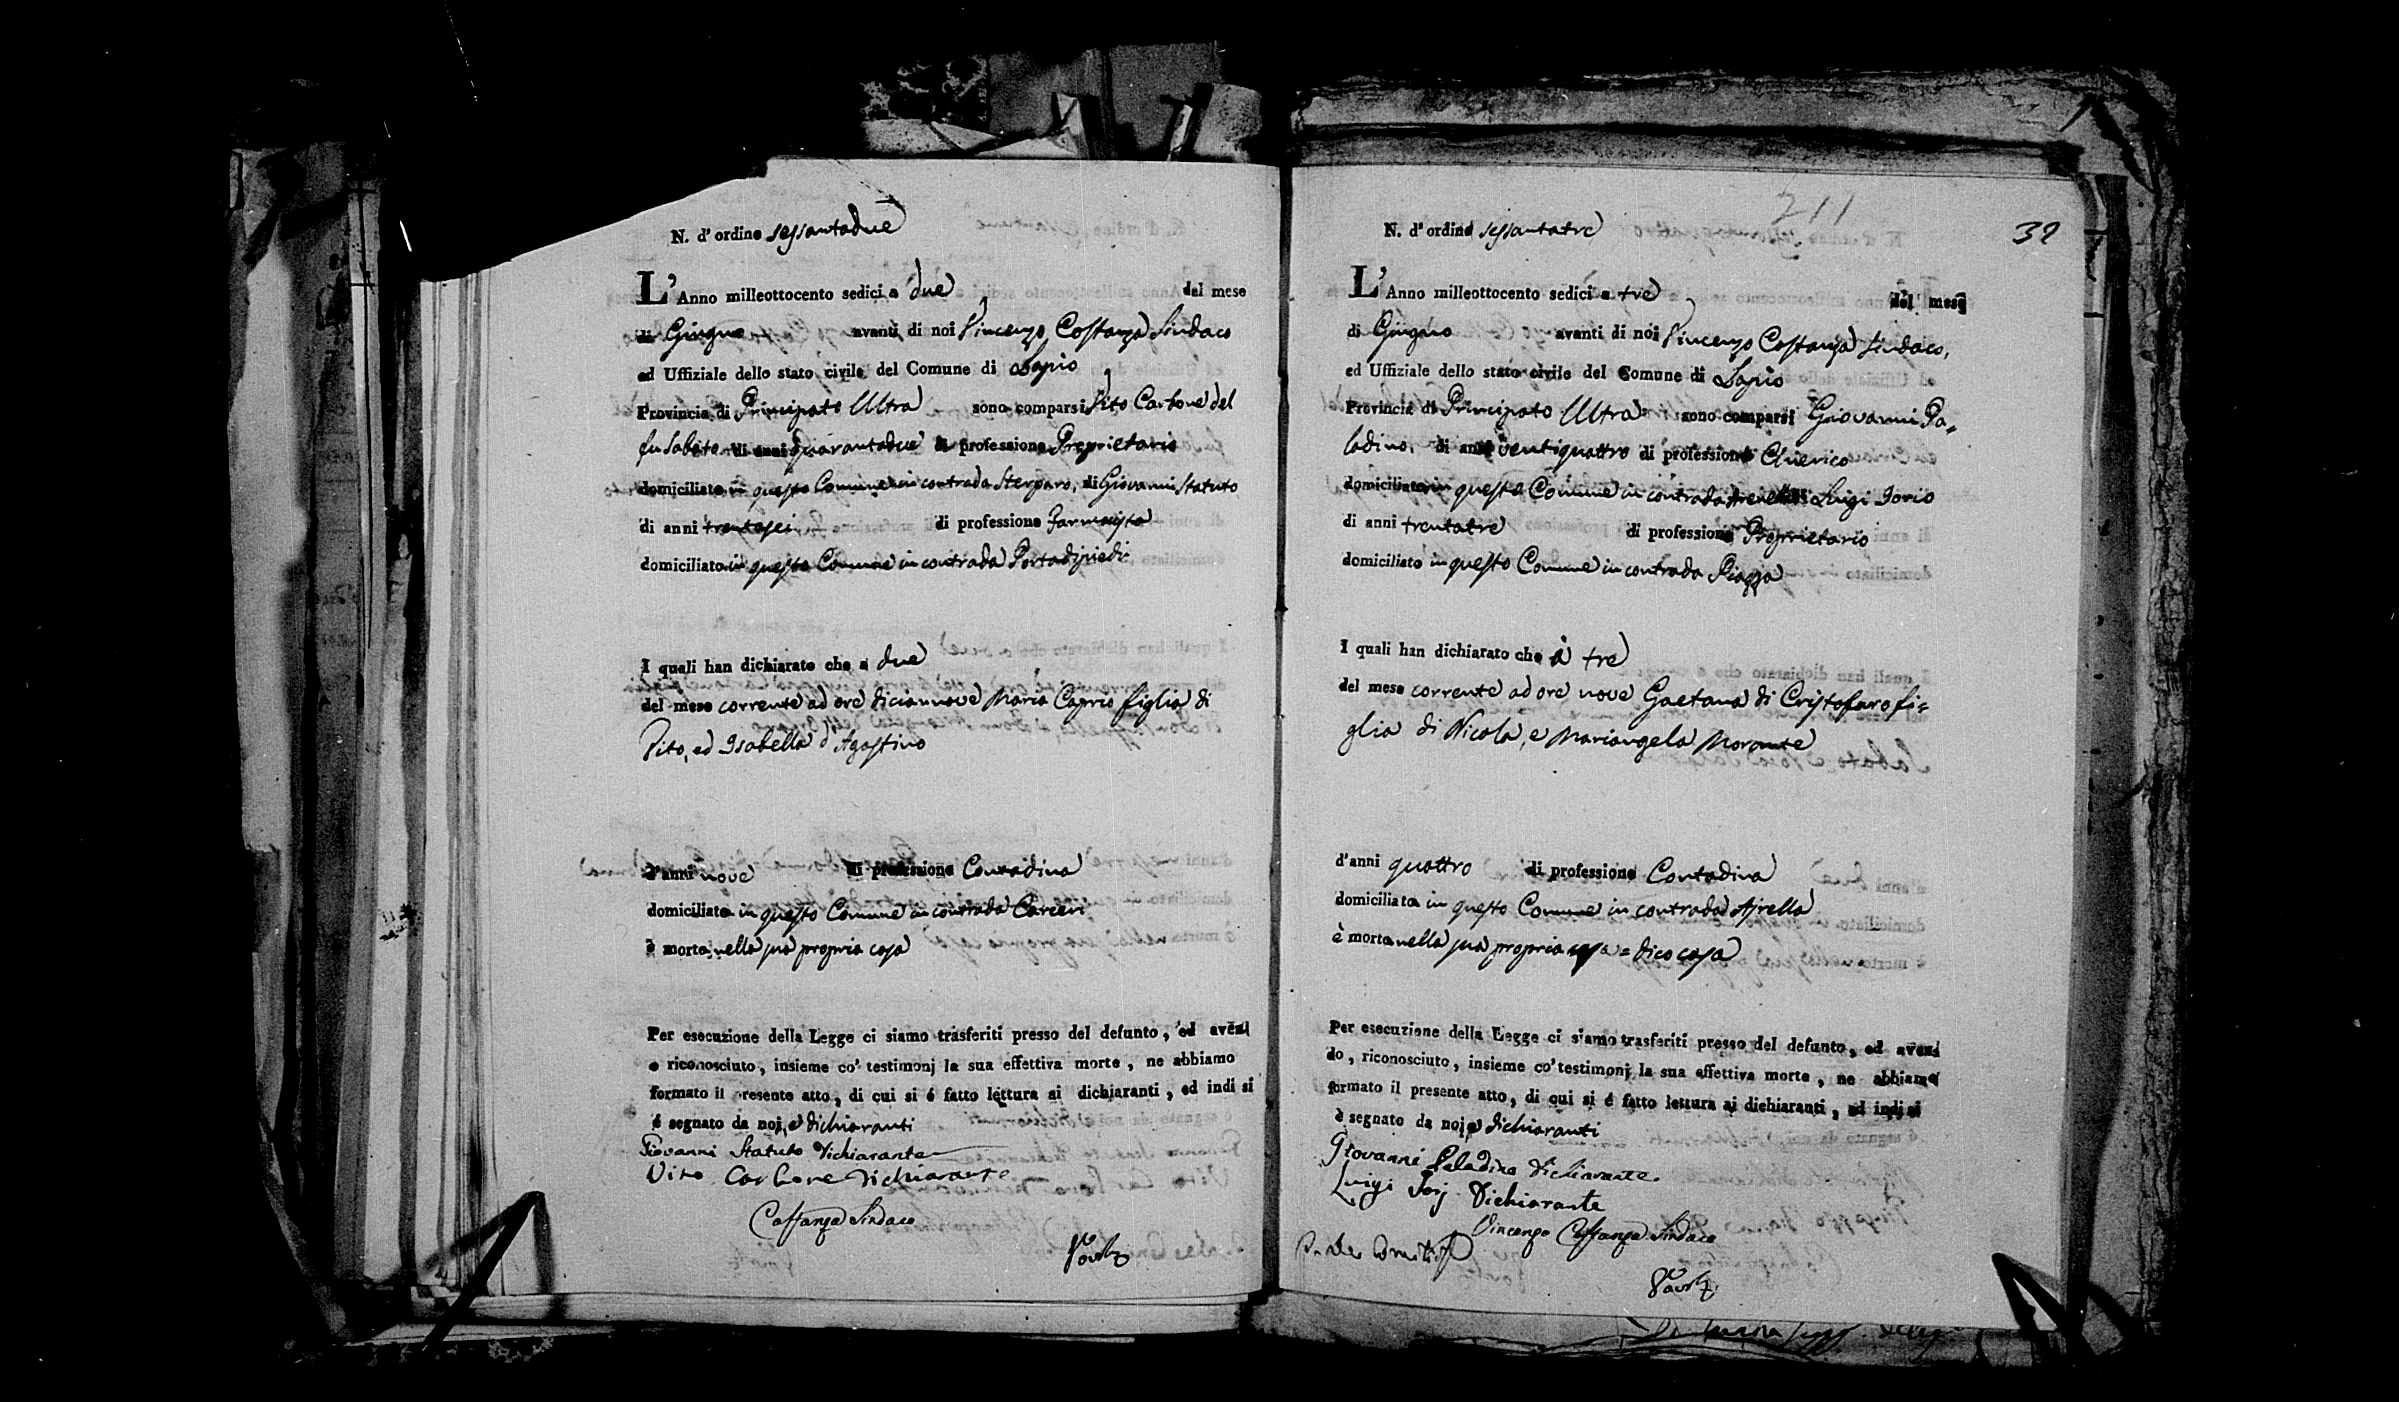 N. d' ordine sessantadue
L' Anno milleottocento sedici a due del mese
di Giugno avanti di noi Vincenzo Costanza Sindaco
ed Uffiziale dello stato civile del Comune di Lapio
Provincia di Principato Ultra sono comparsi Vito Carbone del
fu Sabato di anni quarantadue di professione Proprietario
domiciliato in questo Comune in contrada Sterparo, di Giovanni Statuto
di anni trentasei di professione Farmacista
domiciliato in questo Comune in contrada Portadipiedi
I quali han dichiarato che a due
del mese corrente ad ore diciannove Maria Caprio figlia di
Vito, ed Isabella d'Agostino
d'anni nove di professione Contadina
domiciliata in questo Comune in contrada Carceri
è morta nella sua propria casa
Per esecuzione della Legge ci siamo trasferiti presso del defunto, ed aven
o riconosciuto, insieme co' testimonj la sua effettiva morte, ne abbiamo
formato il resente atto, di cui si é fatto lettura ai dichiaranti, ed indi si
é segnato da noi, e dichiaranti
Giovanni Statuto Dichiarante
Vito Carbone Dichiarante
Costanza Sindaco
211
32
N. d' ordine sessantatre
L' Anno milleottocento sedici a tre del mese
di Giugno avanti di noi Vincenzo Costanza Sindaco,
ed Uffiziale dello stato civile del Comune di Lapio
Provincia di Principato Ultra sono comparsi Giovanni Pa=
ladino, di anni ventiquattro di professione Chierico
domiciliato in questo Comune in contrada Luigi Iorio
di anni trentatre di professione Proprietario
domiciliato in questo Comune in contrada Piazza
I quali han dichiarato che a tre
del mese corrente ad ore nove Gaetana di Cristofaro fi=
glia di Nicola, e Mariangela Morante
d'anni quattro di professione Contadina
domiciliata in questo Comune in contrada Airella
è morta nella sua propria = dico casa
Per esecuzione della Legge ci siamo trasferiti presso del defunto, ed aven
do, riconosciuto, insieme co' testimonj la sua effettiva morte, ne abbiamo
formato il presente atto, di cui si é fatto lettura ai dichiaranti, ed indi si
è segnato da noi, e dichiaranti
Giovanni Paladino Dichiarante
Luigi Iorj Dichiarante
Vincenzo Costanza Sindaco